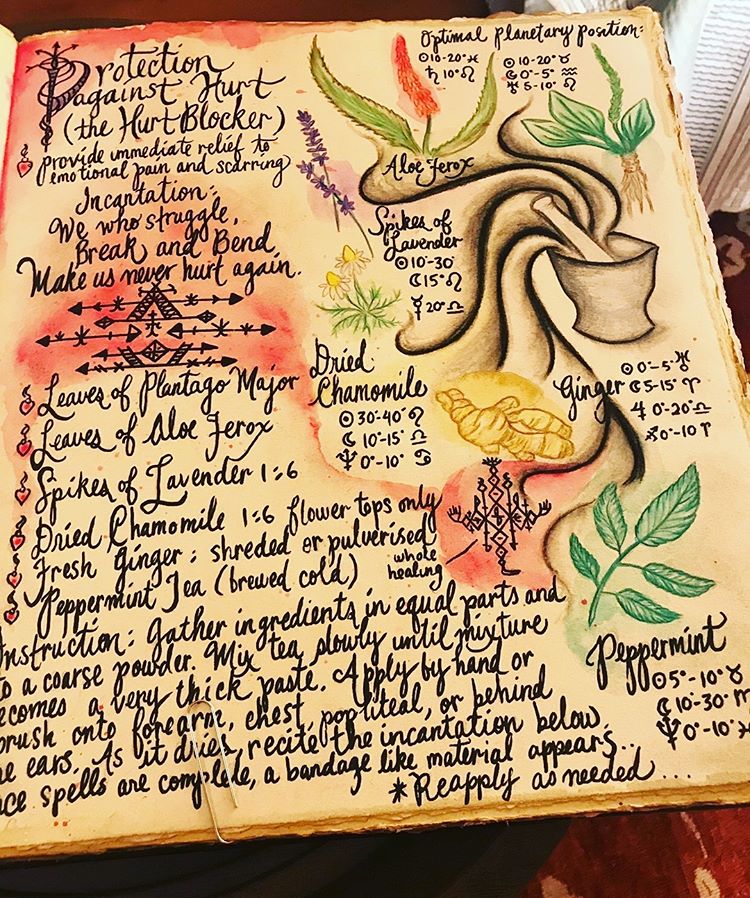 Protection
against Hurt
(the Hurt Blocker)
provide immediate relief to
emotional pain and scarring
Incantation:
We who struggle,
Break and Bend
Make us never hurt again.
Leaves of Plantago Major
Leaves of Aloe Ferox
Spikes of Lavender 1:6
Dried Chamomile 1:6 flower tops only
Fresh Ginger: shreded or pulverised
Peppermint Tea (brewed cold)
Instruction: Gather ingredients in equal parts and
to a coarse powder. Mix tea slowly until mixture
ecomes a very thick paste. Apply by hand or
brush onto forearm, chest, popliteal, or behind
he ears. As it dries, recite the incantation below.
nce spells are complete, a bandage like material appears...
*Reapply as needed...
Optimal planetary position:
☉10-20° ♓
♄ 10° ♌
☉ 10-20° ♉
☾ 0°-5° ♒
♅ 5-10° ♌
Aloe Ferox
Spikes of
Lavender
☉10-30°
☾15° ♌
☿ 20° ♎
Dried
Chamomile
☉ 30-40° ♌
☾ 10-15° ♎
♆ 0°-10° ♋
Ginger
☉ 0°-5° ♅
☾ 5-15° ♈
♃ 0°-20° ♎
♐ 0°-10 ♈
whole
healing
Peppermint
☉ 5°-10° ♉
☾ 10-30°
♆ 0°-10°